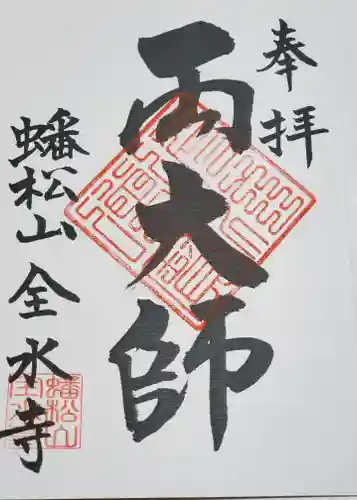 奉拝
両大師
蟠松山全水寺
蟠松山